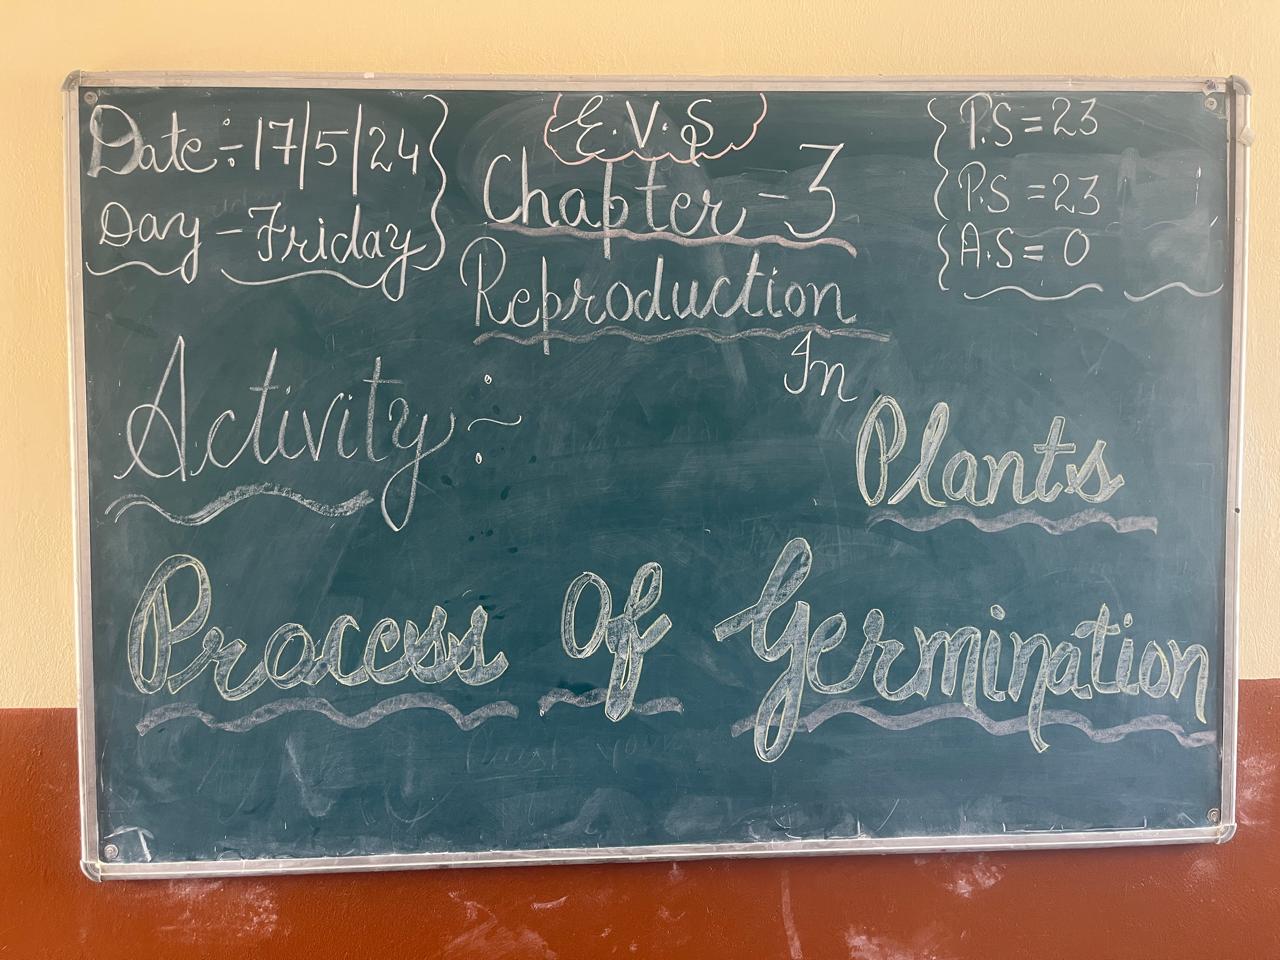 Date÷17/5/24
Day-Friday
E.V.S
Chapter-3
Reproduction
In
Plants
P.S=23
P.S=23
A.S=0
Activity:~
Process Of Germination